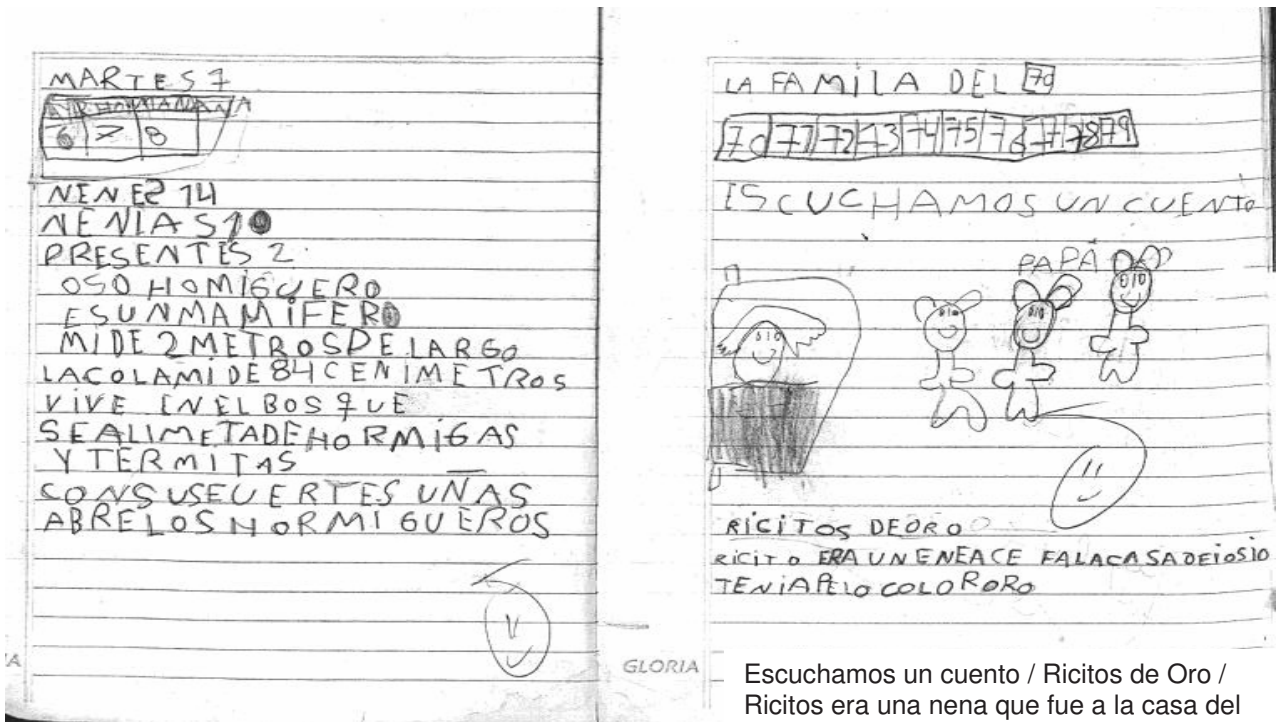 MARTES 7
AYER HOY MAÑANA
6 7 8
NENES 14
NENIAS 10
PRESENTES 2
OSO HOMIGUERO
ES UN MAMIFERO
MIDE 2 METROS DE LARGO
LA COLA MIDE 84 CENIMETROS
VIVE EN EL BOSQUE
SE ALIMETA DE HORMIGAS
Y TERMITAS
CON SUS FUERTES UÑAS
ABRE LOS HORMIGUEROS
LA FAMILA DEL 70
70 71 72 73 74 75 76 77 78 79
ESCUCHAMOS UN CUENTO
PAPÁ
RICITOS DE ORO
RICITO ERA UNENEACE FALACASADEIOSIO
TENIA PELO COLORORO
GLORIA
Escuchamos un cuento / Ricitos de Oro /
Ricitos era una nena que fue a la casa del